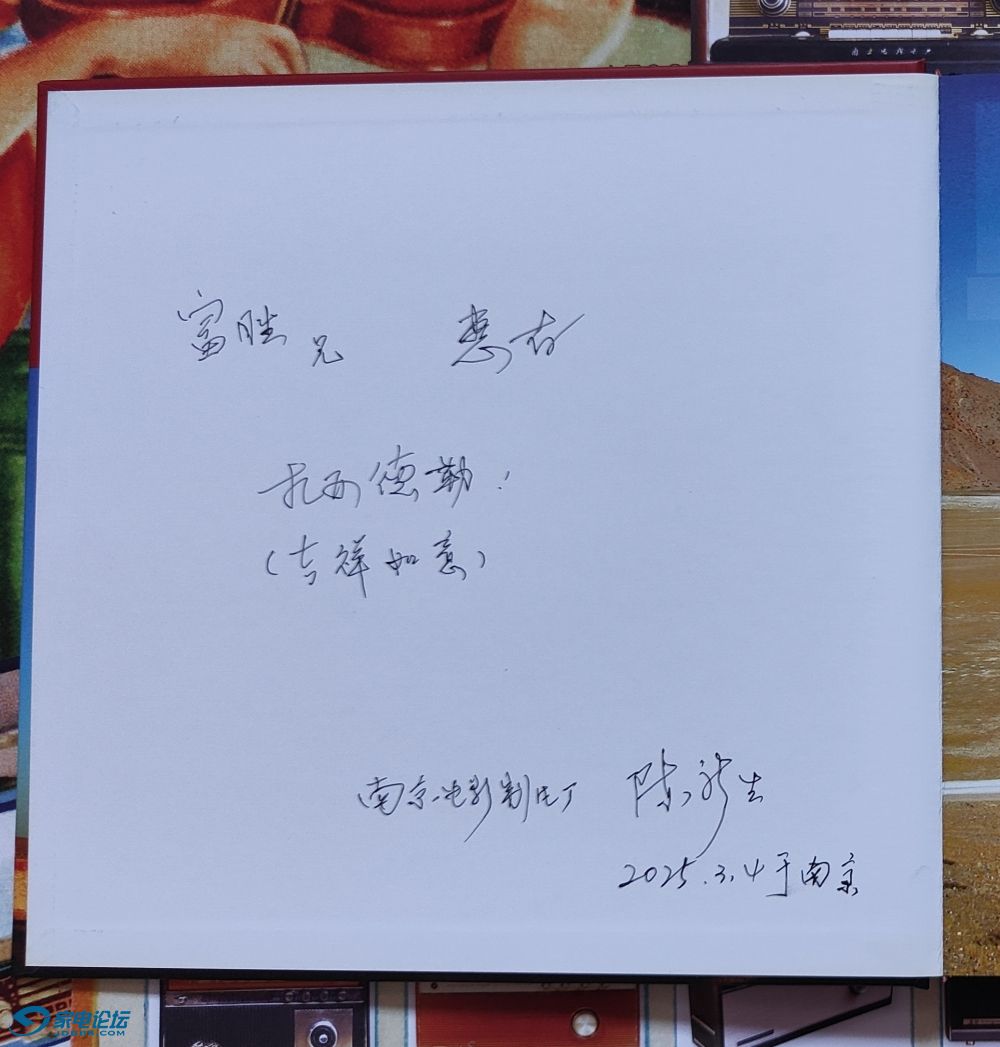 富胜兄 惠存
扎西德勒！
（吉祥如意）
南京电影制片厂 陈新生
2025.3.4于南京
家电论坛
JDBBS.COM